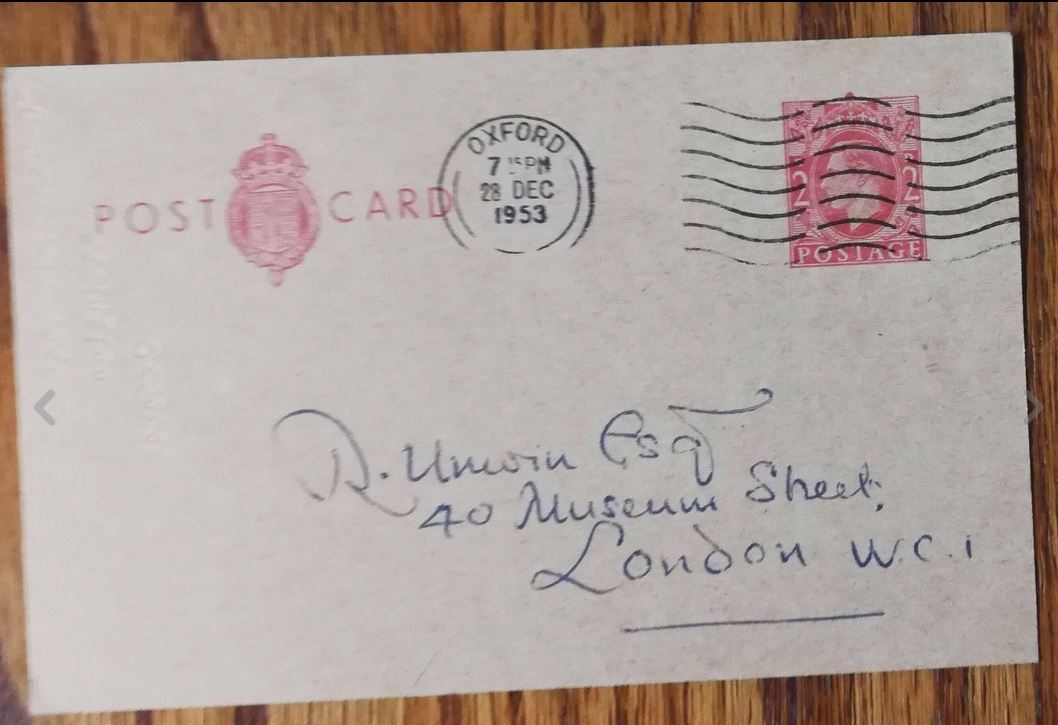 POST CARD
OXFORD
7 15 PM
28 DEC
1953
2 2
POSTAGE
R. Unwin Esq
40 Museum Street,
London W.C.1